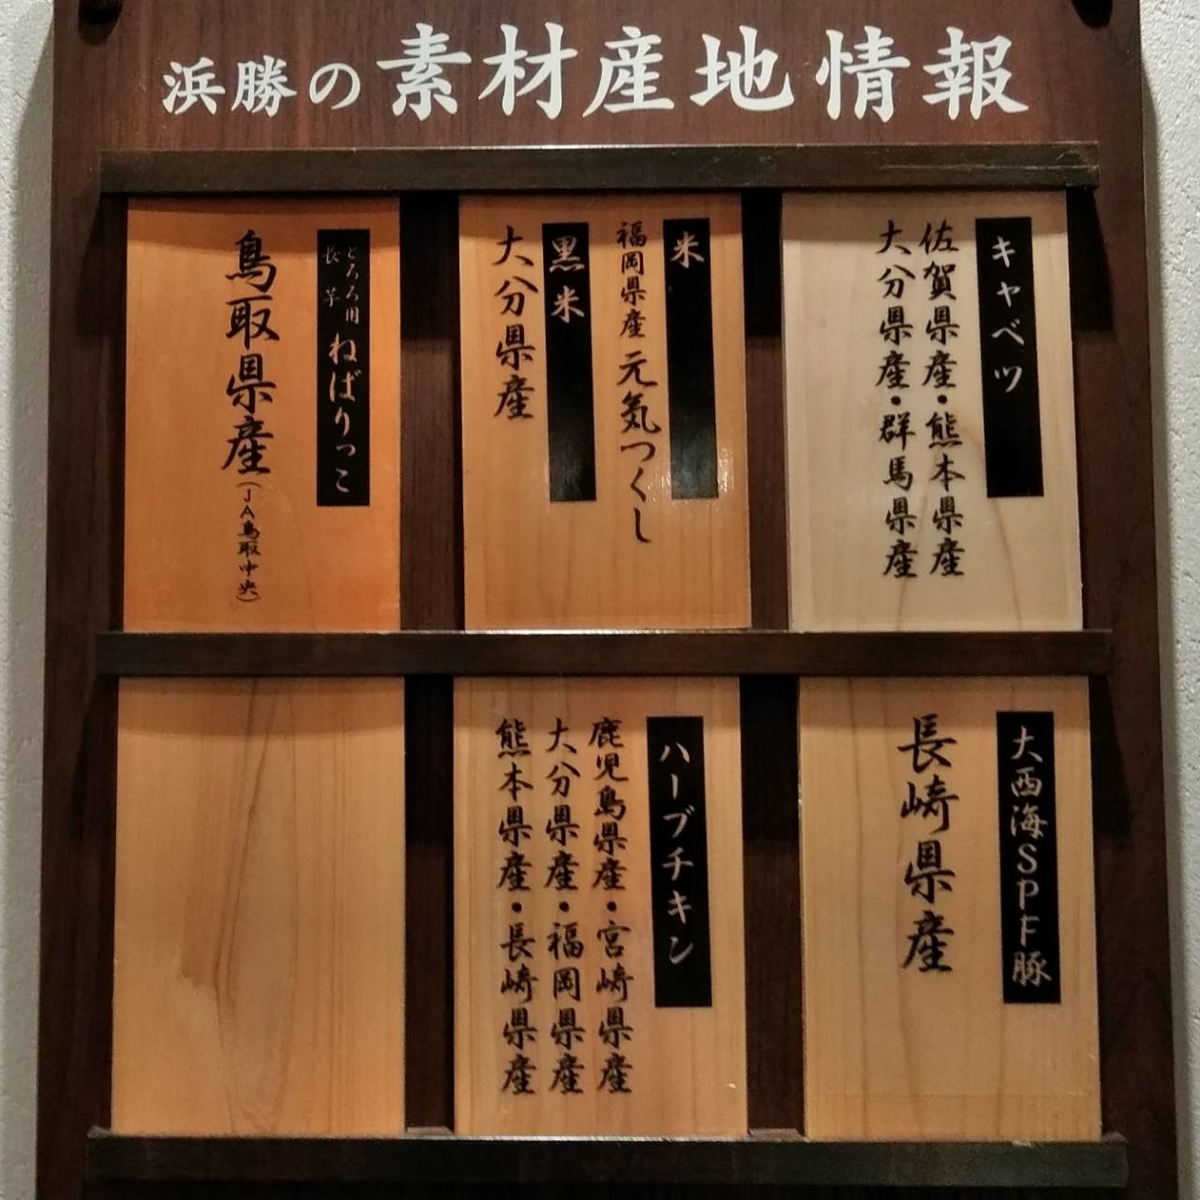 浜勝の素材産地情報
キャベツ
佐賀県産・熊本県産
大分県産・群馬県産
米
福岡県産 元気つくし
黒米
大分県産
とろろ用
長芋
ねばりっこ
鳥取県産(JA鳥取中央)
大西海SPF豚
長崎県産
ハーブチキン
鹿児島県産・宮崎県産
大分県産・福岡県産
熊本県産・長崎県産